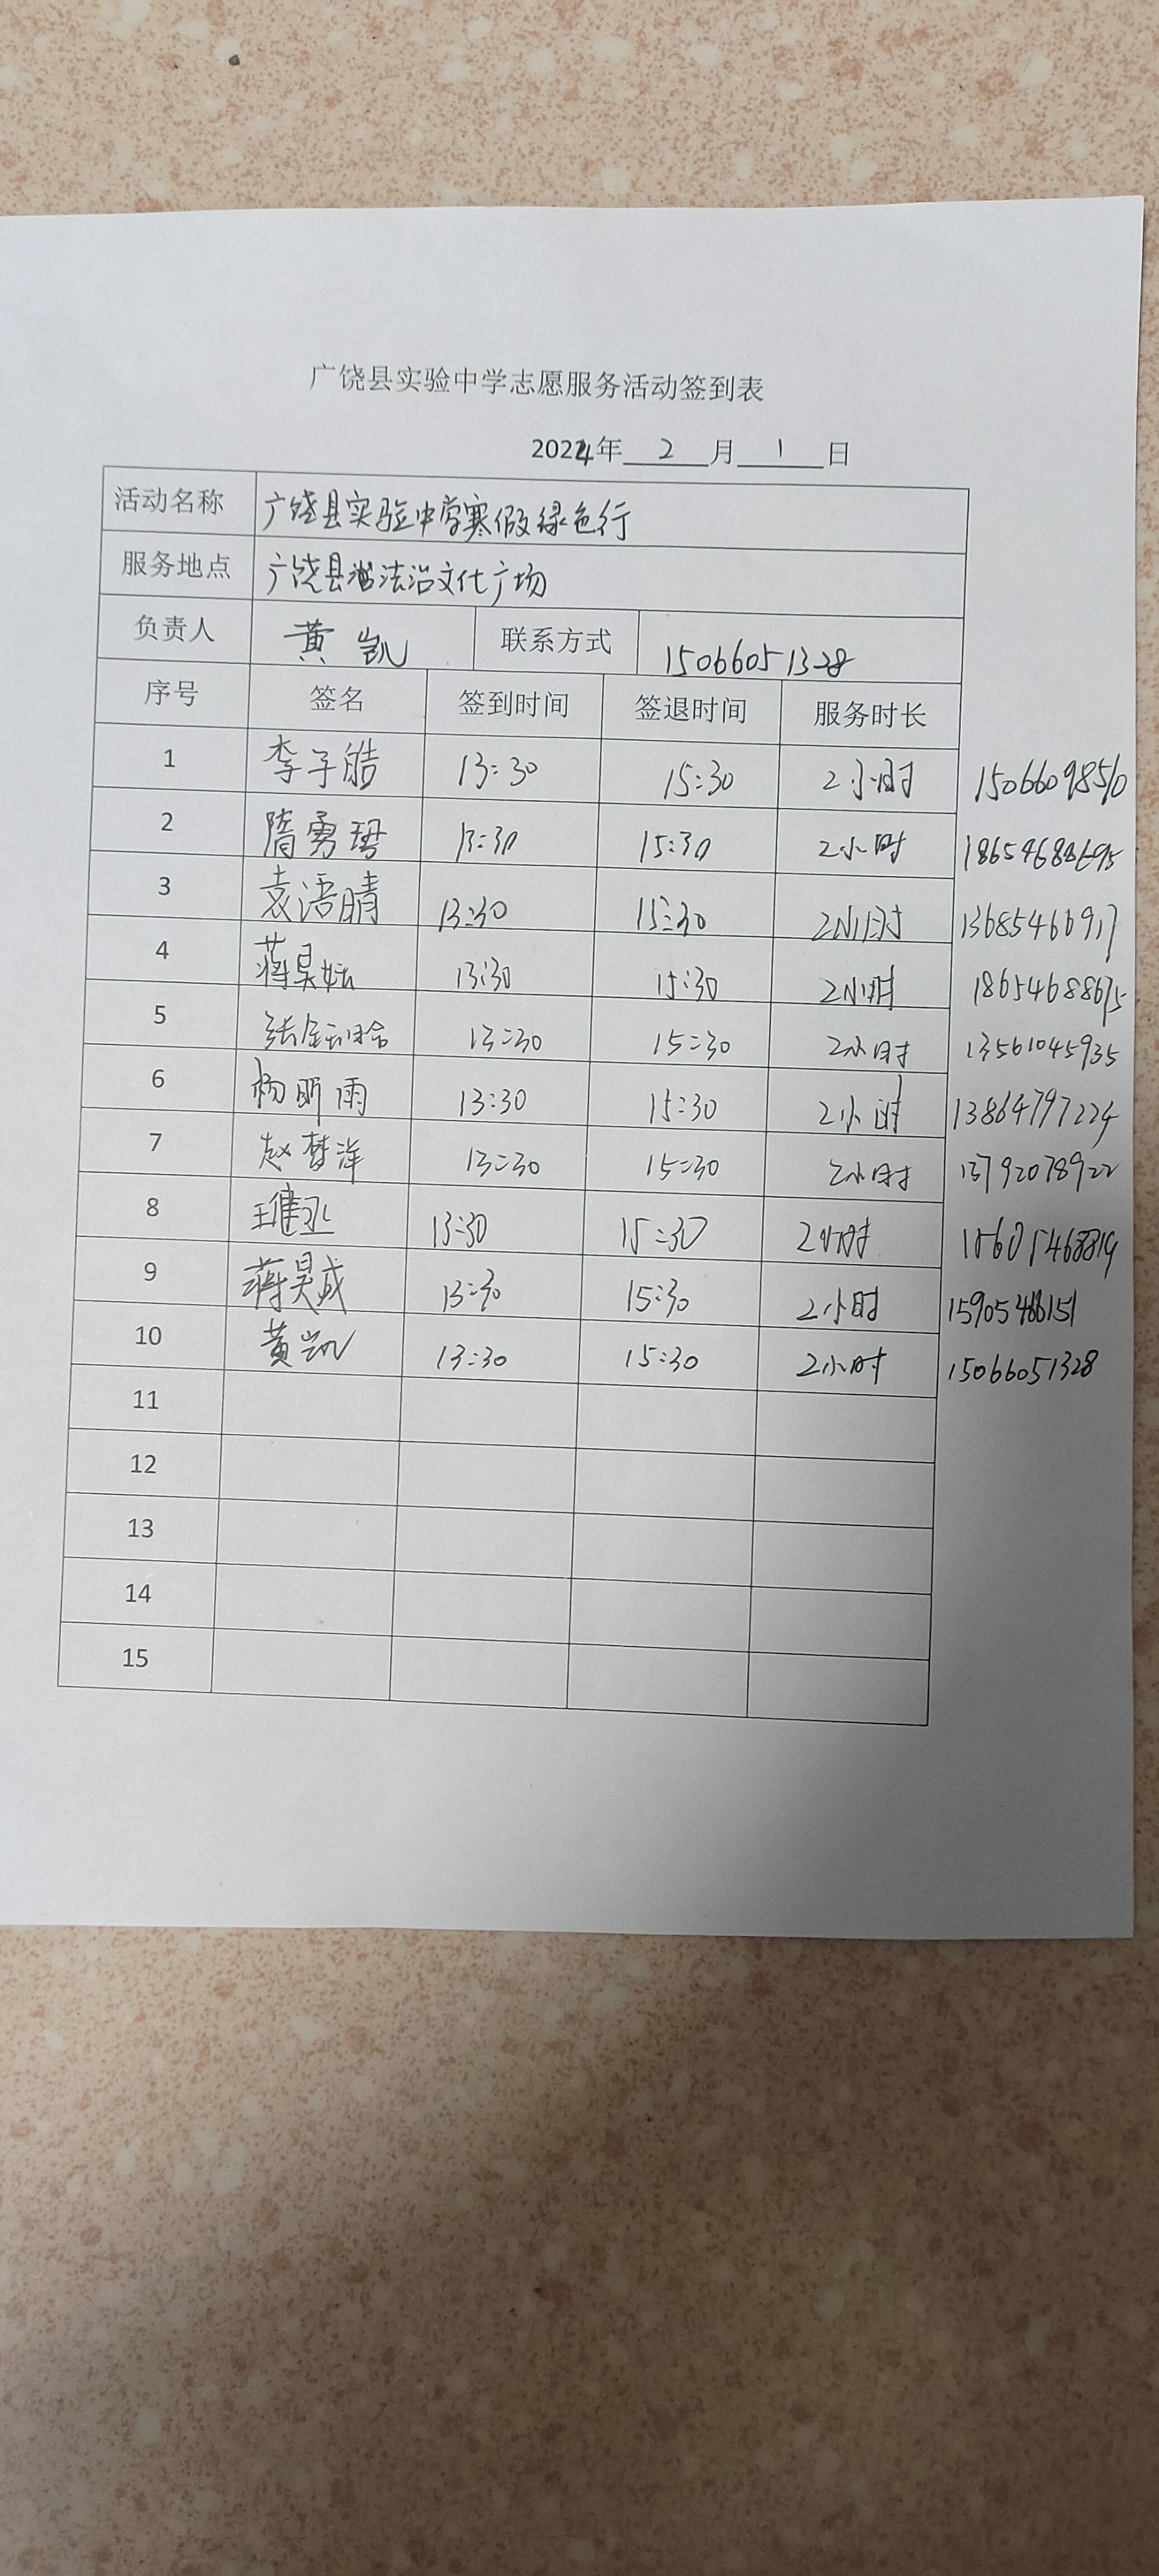 广饶县实验中学志愿服务活动签到表
2024年 2 月 1 日
活动名称 广饶县实验中学寒假绿色行
服务地点 广饶县法治文化广场
负责人 黄凯 联系方式 15066051328
序号 签名 签到时间 签退时间 服务时长
1 李子皓 13:30 15:30 2小时 15066098510
2 隋勇 13:30 15:30 2小时
3 袁语晴 13:30 15:30 2小时
4 蒋昊 13:30 15:30 2小时 18654688675
5 张 13:30 15:30 2小时 13561045935
6 杨昕雨 13:30 15:30 2小时 13864797224
7 赵梦洋 13:30 15:30 2小时 13792078922
8 王 13:30 15:30 2小时
9 蒋昊成 13:30 15:30 2小时
10 黄凯 13:30 15:30 2小时 15066051328
11
12
13
14
15